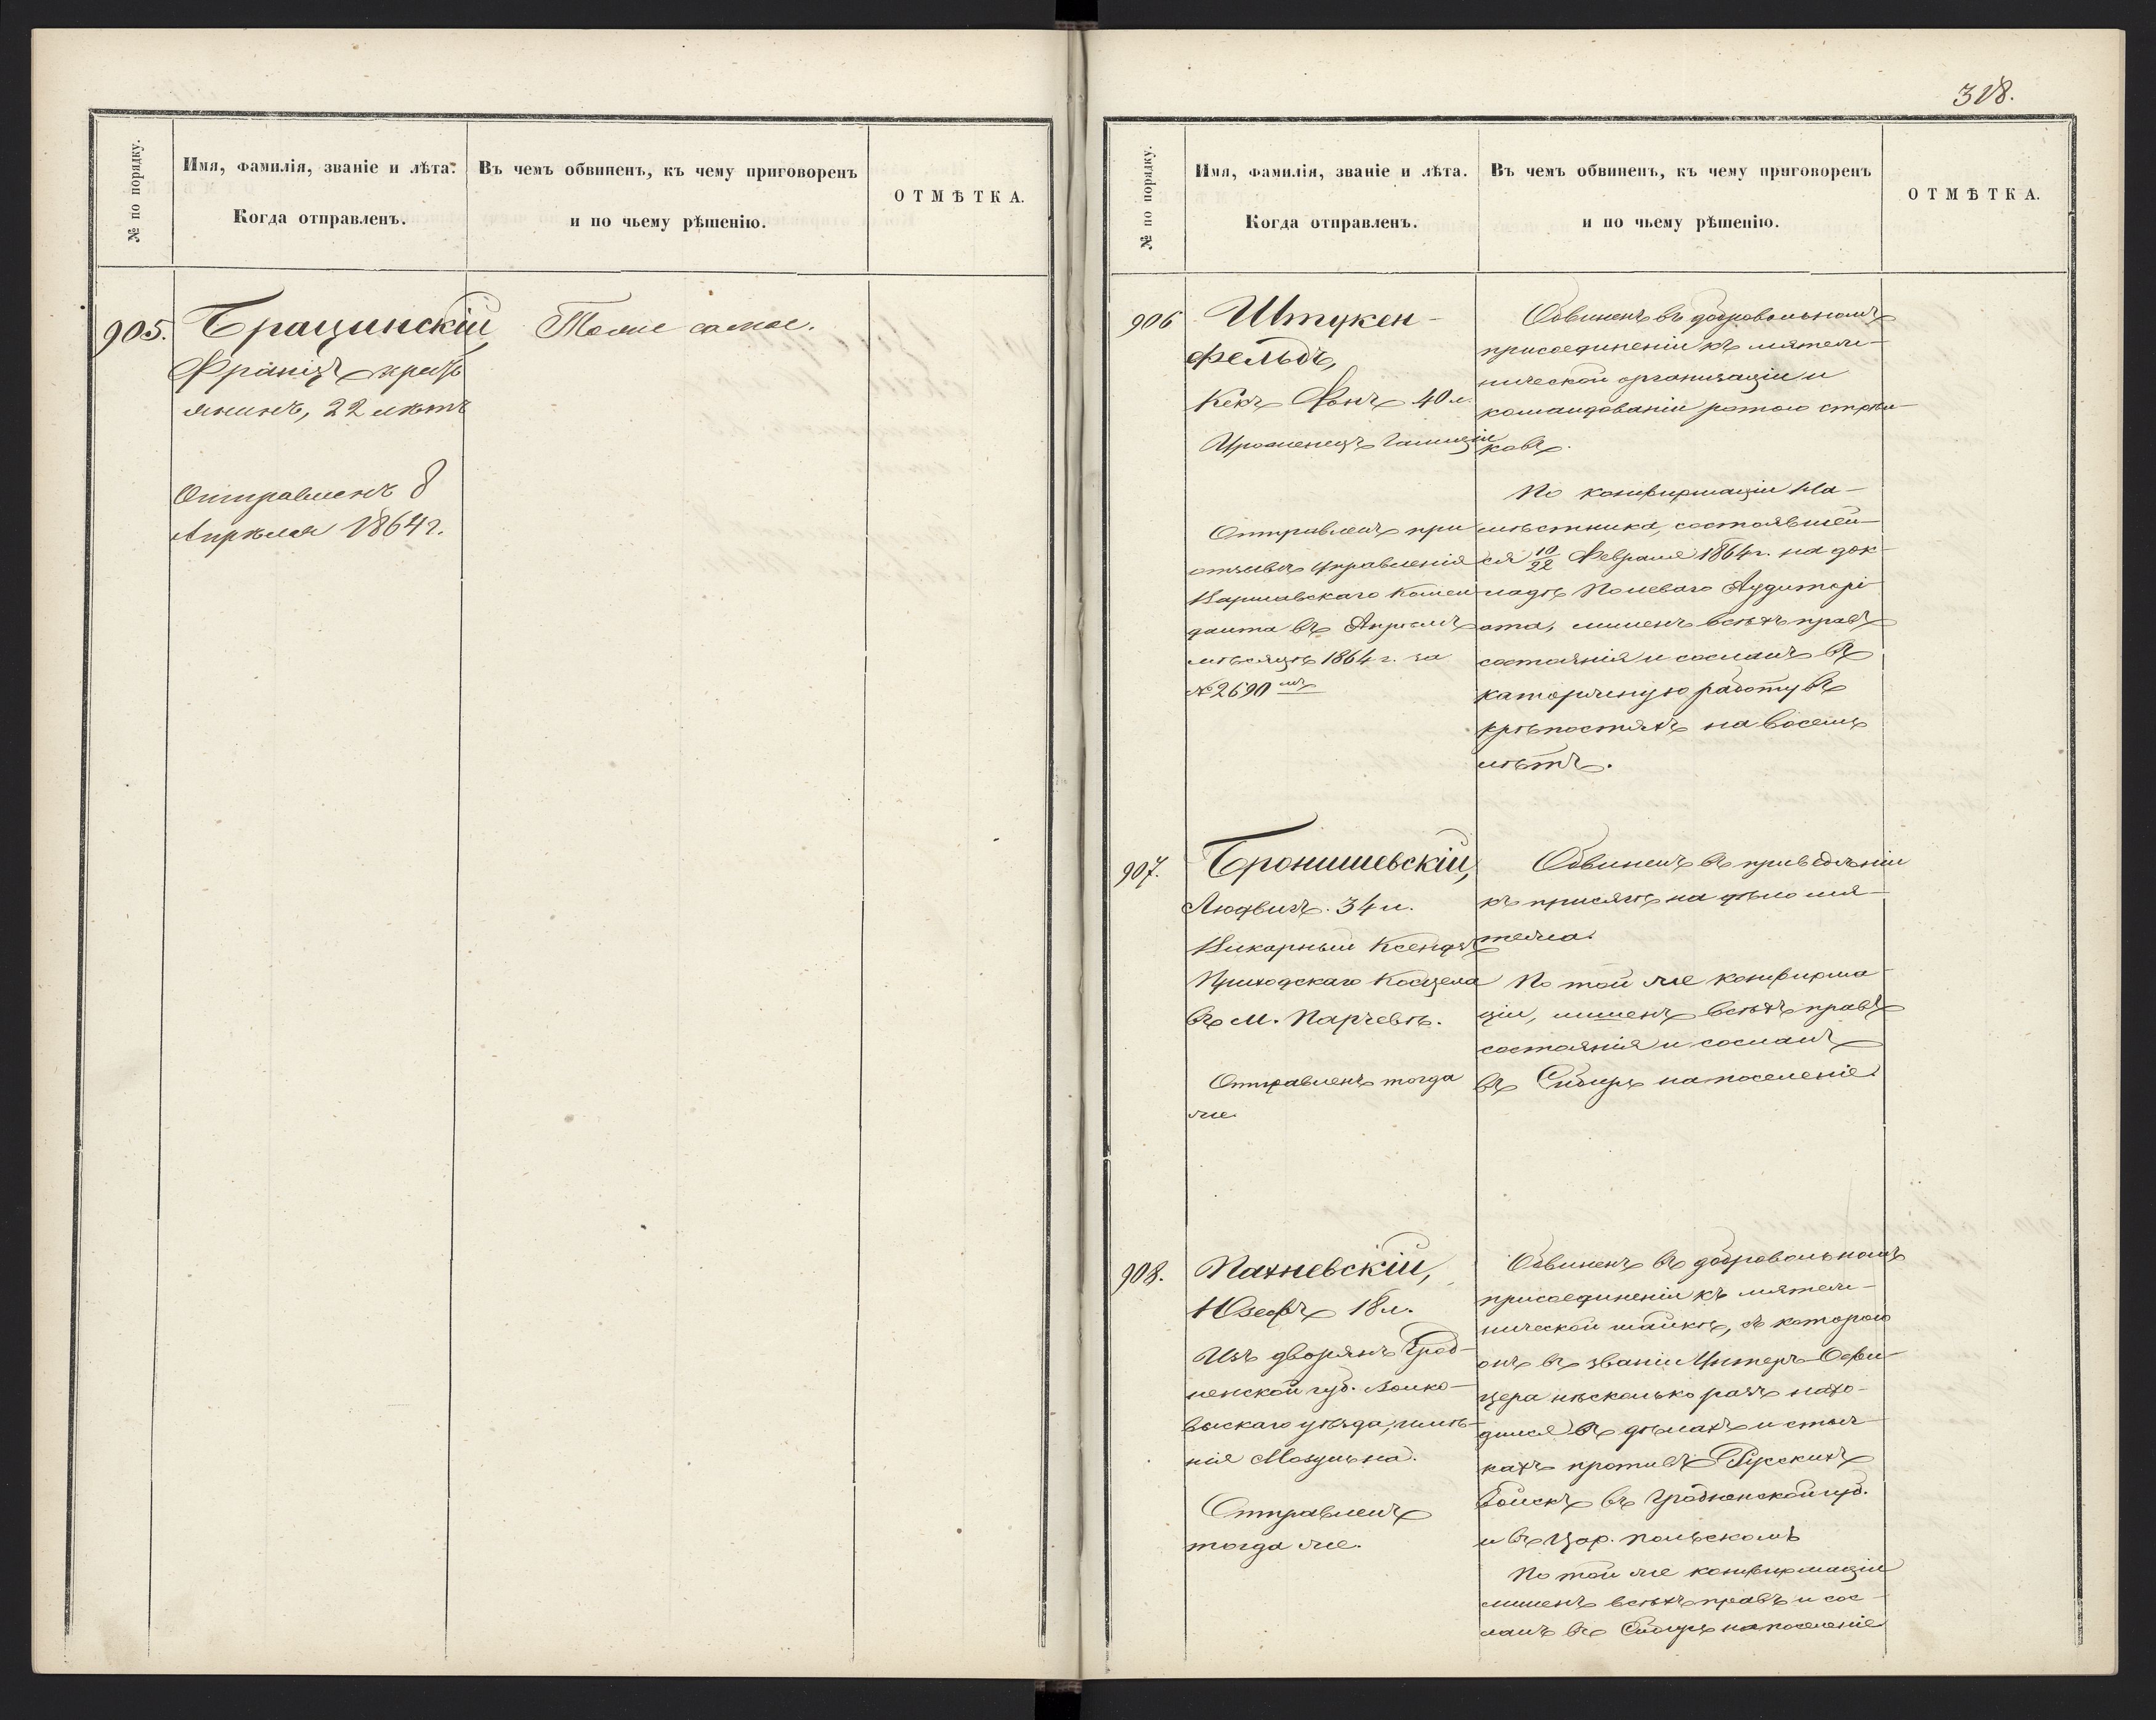 № по порядку.
Имя, фамилія, званіе и лѣта.
Когда отправленъ.
Въ чемъ обвиненъ, къ чему приговоренъ
и по чьему рѣшенію.
ОТМѢТКА.
905.
Брацинскій
Францъ крестъ
янинъ, 22 лѣтъ
Отправленъ 8
Апрѣля 1864 г.
Тоже самое.
318.
№ по порядку.
Имя, фамилія, званіе и лѣта.
Когда отправленъ.
Въ чемъ обвиненъ, къ чему приговоренъ
и по чьему рѣшенію.
ОТМѢТКА.
906
Штукен-
фельдъ,
Кекъ Фонъ 40 л.
Уроженецъ Галиціи
Отправленъ при
отзывѣ управленія
Варшавскаго Комен
данта въ Апрѣлѣ
мѣсяцѣ 1864 г. за
№ 2690 мъ
Обвиненъ въ добровольномъ
присоединеніи къ мятеж-
нической организаціи и
командованіи ротою стрѣл-
ковъ.
По конфирмаціи На-
мѣстника, состоявшей-
ся 10/22 Февраля 1864 г. на док-
ладѣ Полеваго Аудиторі
ата, лишенъ всѣхъ правъ
состоянія и сосланъ въ
каторжную работу въ
крѣпостяхъ на восемь
лѣтъ.
907.
Бронишевскій,
Людвигъ. 34 л.
Викарный Ксендзъ
Приходскаго Косцела
въ М. Парчевѣ.
Отправленъ тогда
же.
Обвиненъ въ приведеніи
къ присягѣ на дѣло мя-
тежа.
По той же конфирма-
ціи, лишенъ всѣхъ правъ
состоянія и сосланъ
въ Сибирь на поселеніе.
908.
Пахневскій,
Юзефъ 18 л.
Изъ дворянъ Грод-
ненской губ. Волко-
выскаго уѣзда, имѣ-
нія
Отправленъ
тогда же.
Обвиненъ въ добровольномъ
присоединеніи къ мятеж-
нической шайкѣ, съ которою
онъ въ званіи Унтеръ-Офи-
цера нѣсколько разъ нахо-
дился въ дѣлахъ и стыч-
кахъ противъ Русскихъ
Войскъ въ Гродненской губ.
и въ Цар. Польскомъ
По той же конфирмаціи
лишенъ всѣхъ правъ и сос-
ланъ въ Сибирь на поселеніе